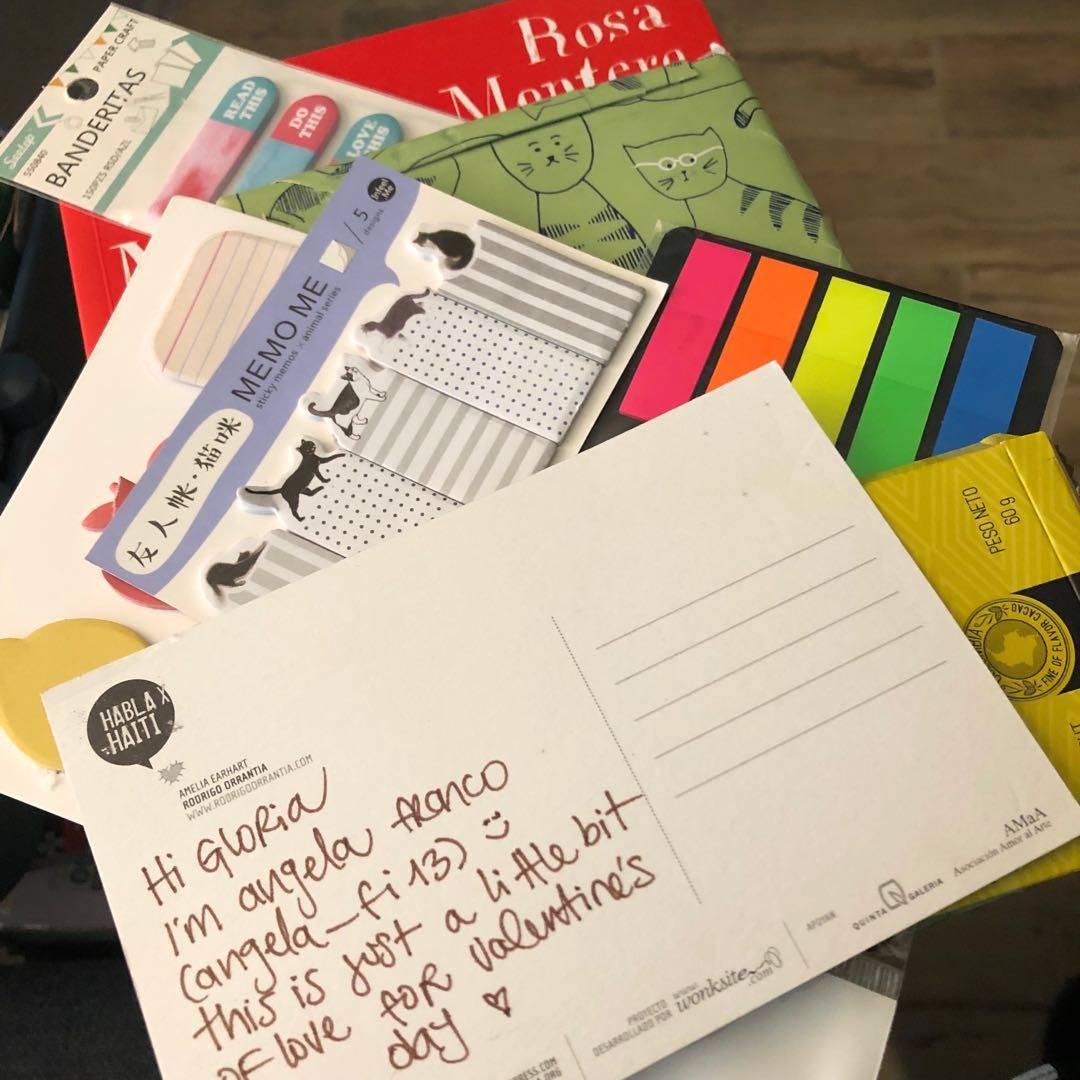 Rosa
Montero
PAPER CRAFT
BANDERITAS
550840
150PZS RSD/AZL
READ
THIS
DO
THIS
LOVE
THIS
MEMO ME
sticky memos × animal series
/ 5
designs
友人帐·猫咪
PESO NETO
60 g
FINE OF FLAVOR CACAO
HABLA X
HAITI
AMELIA EARHART
RODRIGO ORRANTIA
WWW.RODRIGOORRANTIA.COM
Hi GLORIA
I'm angela FRANCO
(angela_fi13) :)
this is just a little bit
of love FOR valentine's
day ♥
AMaA
Asociación Amor al Arte
APOYAN
QUINTA GALERIA
PROYECTO
DESARROLLADO POR
www.
wonksite
.com